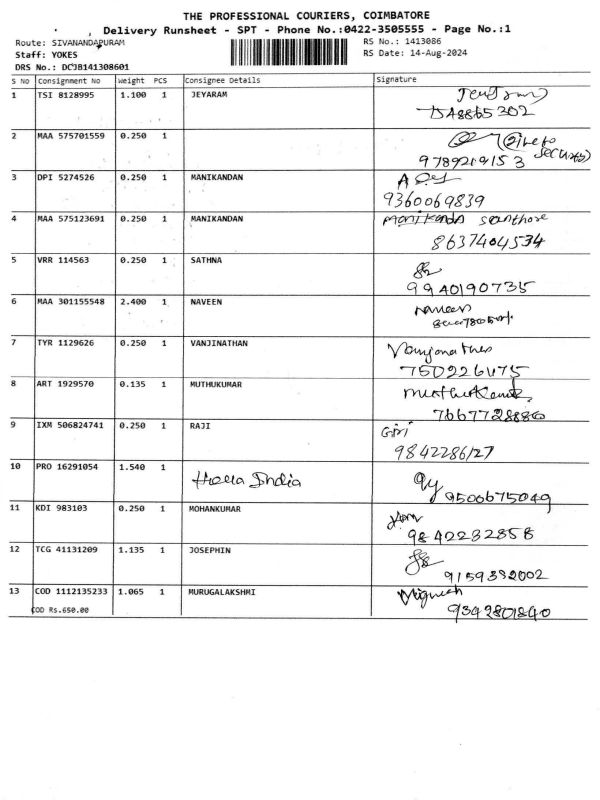 THE PROFESSIONAL COURIERS, COIMBATORE
Delivery Runsheet - SPT - Phone No.:0422-3505555 - Page No.:1
Route: SIVANANDAPURAM
RS No.: 1413086
Staff: YOKES
RS Date: 14-Aug-2024
DRS No.: DCJB141308601
S No Consignment No Weight PCS Consignee Details Signature
1 TSI 8128995 1.100 1 JEYARAM
2 MAA 575701559 0.250 1
9789219153
3 DPI 5274526 0.250 1 MANIKANDAN
9360069839
4 MAA 575123691 0.250 1 MANIKANDAN
8637404534
5 VRR 114563 0.250 1 SATHNA
9940190735
6 MAA 301155548 2.400 1 NAVEEN
Naveen
7 TYR 1129626 0.250 1 VANJINATHAN
8 ART 1929570 0.135 1 MUTHUKUMAR
9 IXM 506824741 0.250 1 RAJI
Giri
9842286127
10 PRO 16291054 1.540 1 India
9500675049
11 KDI 983103 0.250 1 MOHANKUMAR
9842232858
12 TCG 41131209 1.135 1 JOSEPHIN
9159332002
13 COD 1112135233 1.065 1 MURUGALAKSHMI
COD Rs.650.00
9342801840